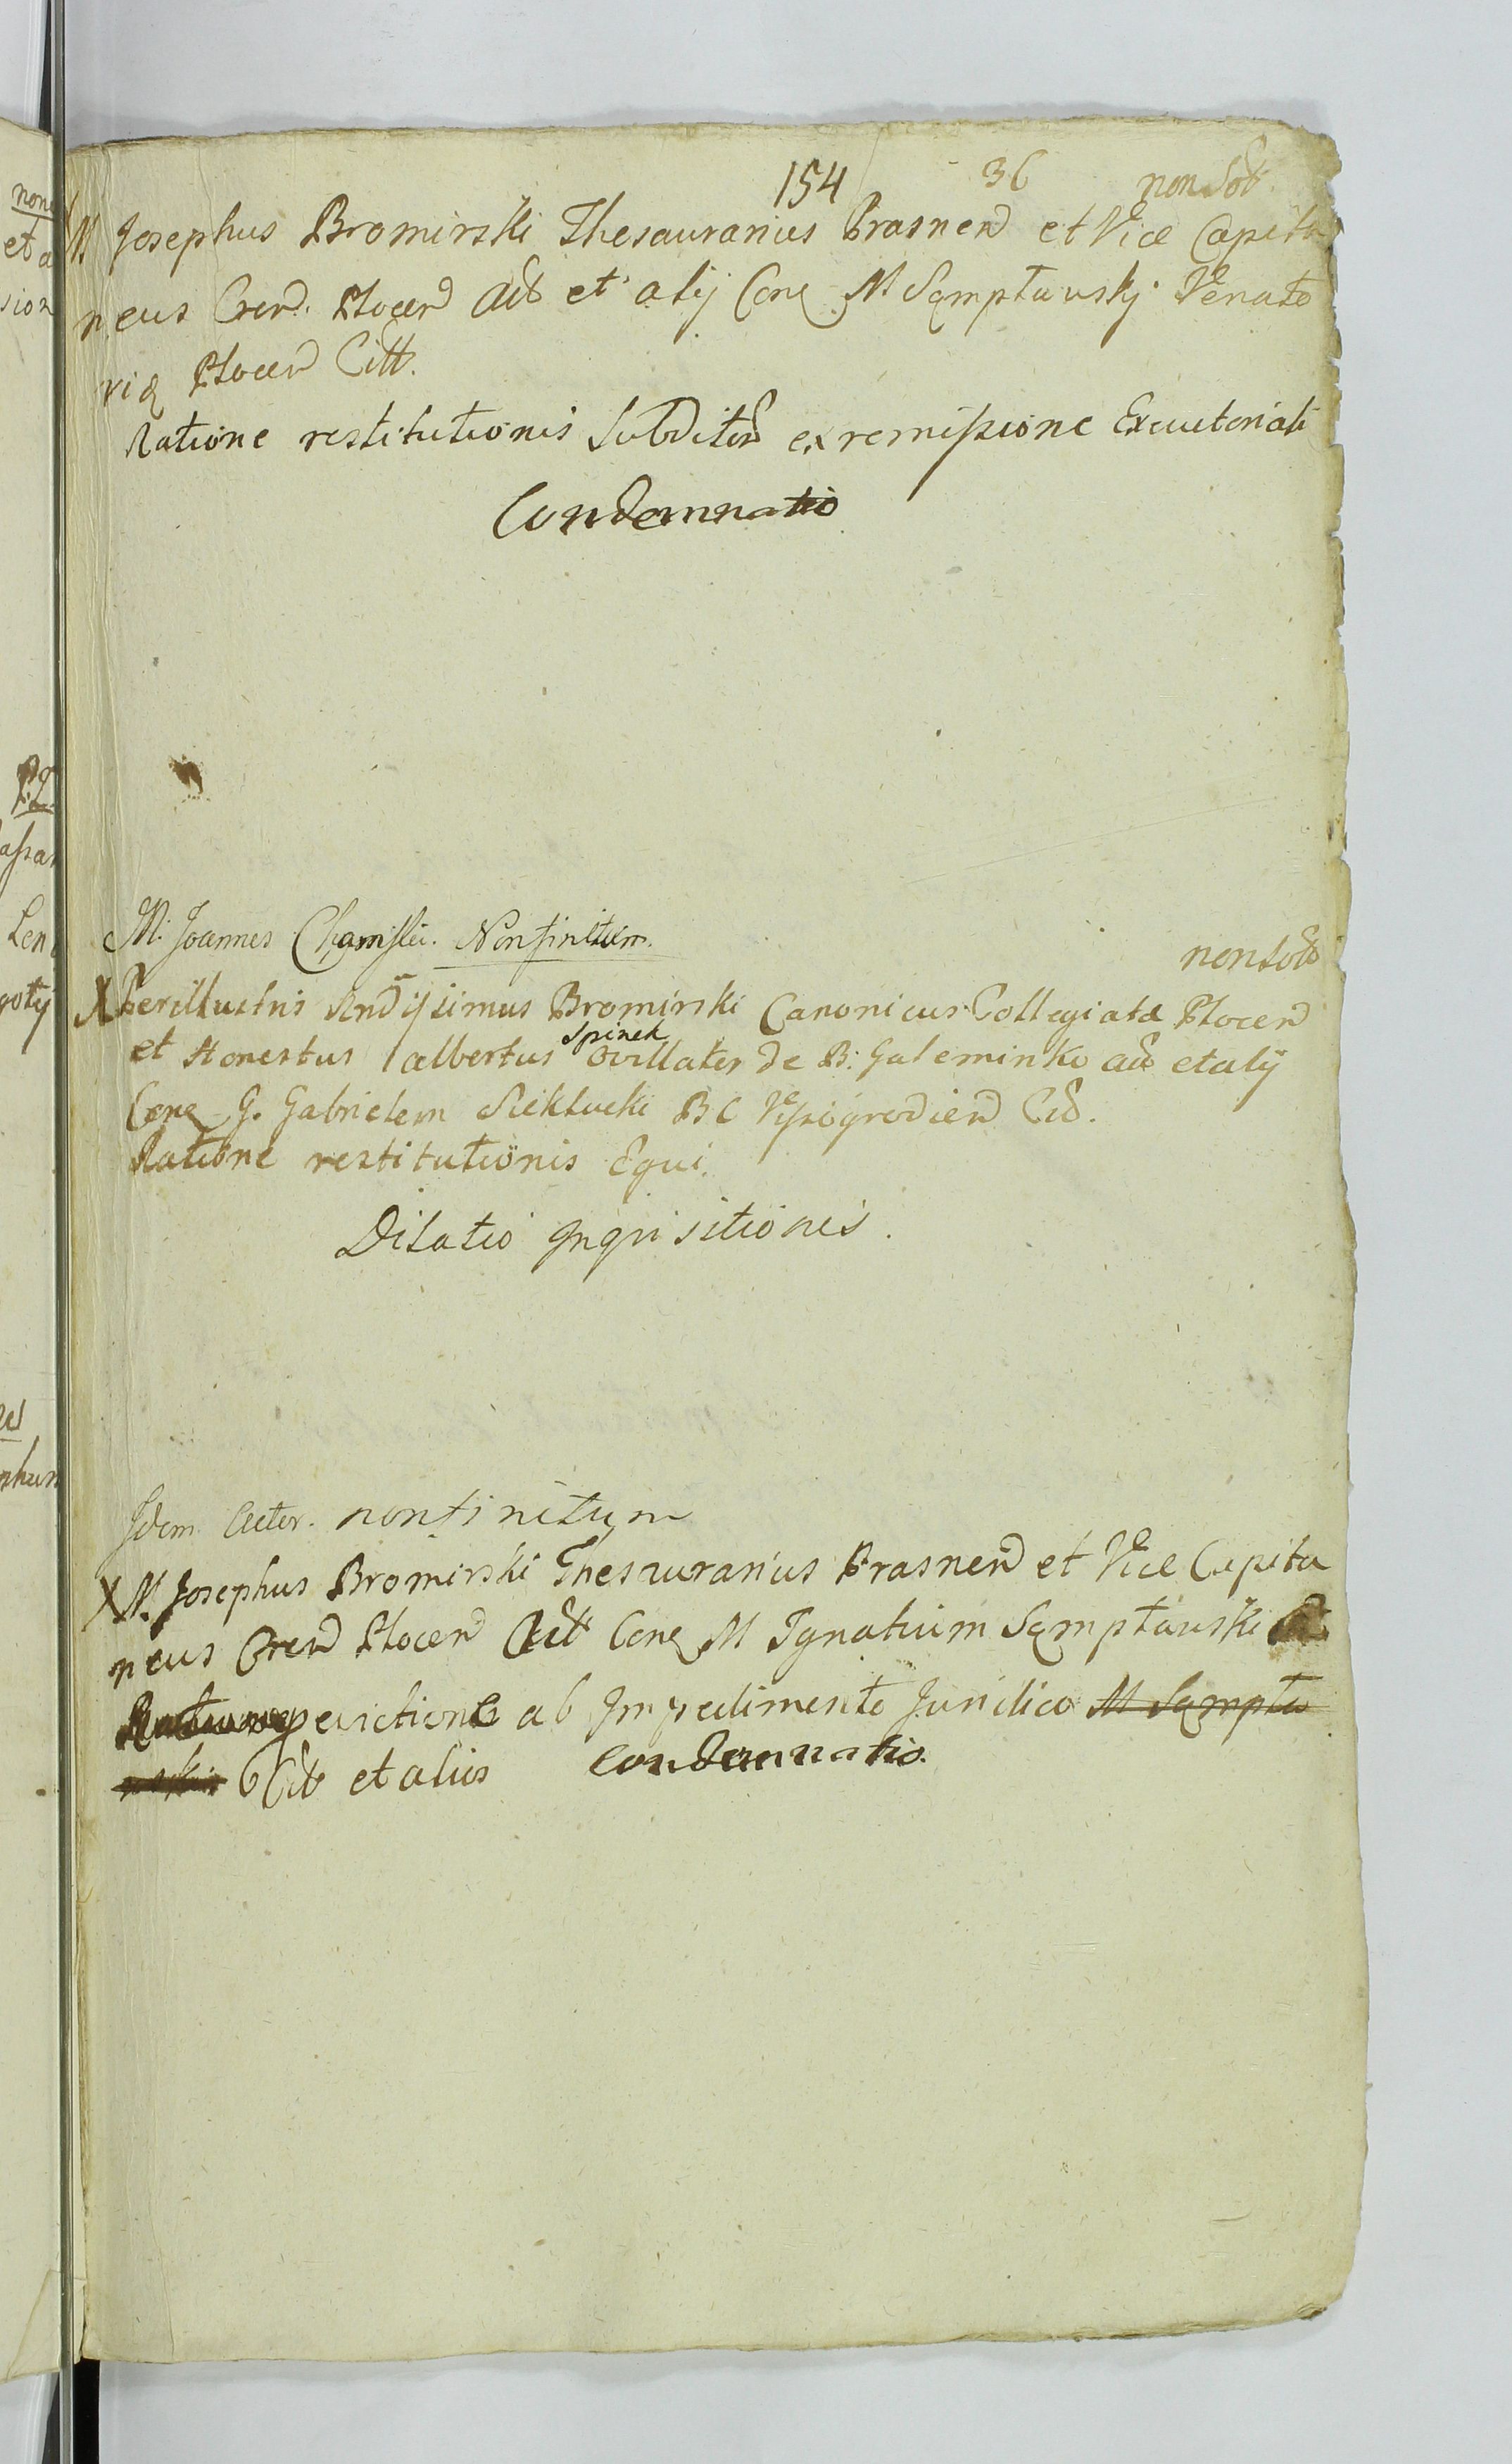 154 36 non Sol
M Josephus Bromirski Thesaurarius Prasnen et Vice Capita
neus Cren. Plocen Act et alij Cone M. Sęmptawskj Venato
rię Plocen Citt.
Ratione restitutionis Subditor ex remissione Executoriali
Condemnatio
M. Joannes Nonfinitum.
non Sol
X Perillustris Rndissimus Bromirski Canonicus Collegiatæ Plocen
Spinek
et Honestus Albertus Ovillator de B: Galeminko act et alij
Cone G. Gabrielem Siekłucki BC Wyszogrodien Cit.
Ratione restitutionis Equi.
Dilatio Inquisitionis.
Idem Actor. nonfinitum
X M. Josephus Bromirski Thesaurarius Prasnen et Vice Capita
neus Cren Plocen Act Cone M Ignatium Sęmptawski
evictione ab Impedimento Juridico M Sęmpta
wski Citt et alios Condemnatio.
none
et a
sion
Len
goty